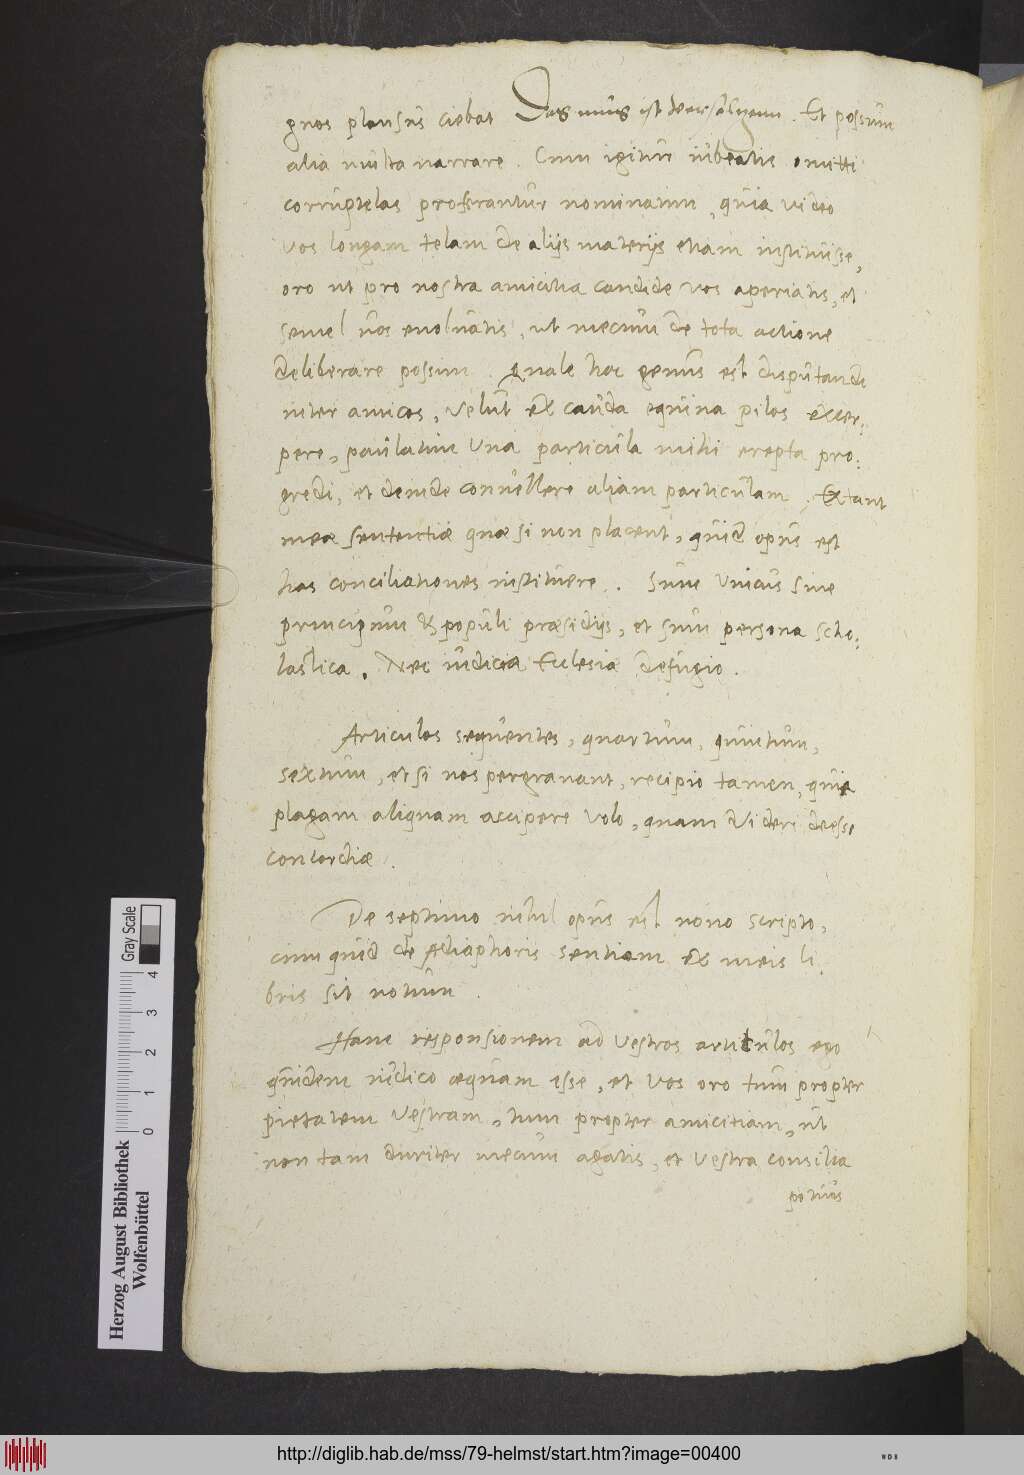 gnos plausus ciebat Das mus ist der . Et possum
alia multa narrare . Cum igitur iubeatis omitti
corruptelas proferantur nominatim , quia video
vos longam telam de alijs materijs etiam instituisse,
oro ut pro nostra amicitia candide vos aperiatis, et
semel vos evoluatis , ut mecum de tota actione
deliberare possim . Quale hoc genus est disputandi
inter amicos, velut ex cauda equina pilos excer:
pere, paulatim una particula mihi erepta pro:
gredi, et deinde convellere aliam particulam . Extant
meae sententiae quae si non placent, quid opus est
has conciliationes instituere . Sum unicus sine
principum & populi praesidijs, et sum persona scho:
lastica . Nec iudicia Ecclesiae defugio .
Articulos sequentes, quartum, quintum,
sextum, etsi nos pergravant, recipio tamen, quia
plagam aliquam accipere volo, quam videri deesse
concordiae .
De septimo nihil opus est novo scripto,
cum quid de Adiaphoris sentiam ex meis li
bris sit notum .
Hanc responsionem ad vestros articulos ego
quidem iudico aequam esse, et vos oro tum propter
pietatem vestram, tum propter amicitiam, ut
non tam duriter mecum agatis, et vestra consilia
potius
Gray Scale
0 1 2 3 4
Herzog August Bibliothek
Wolfenbüttel
http://diglib.hab.de/mss/79-helmst/start.htm?image=00400